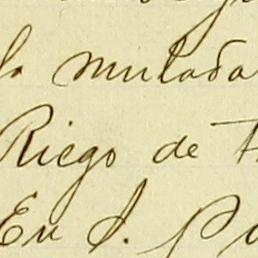 la mulada
Riego de
En S.